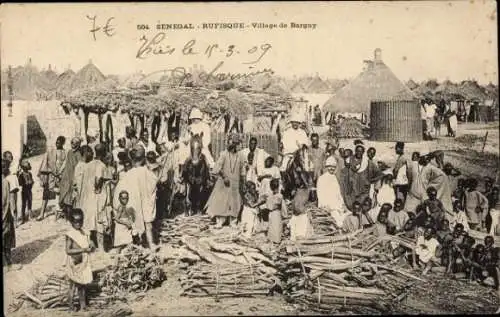 504 SENEGAL - RUFISQUE - Village de Bargny
7€
Thiès le 15-3-09